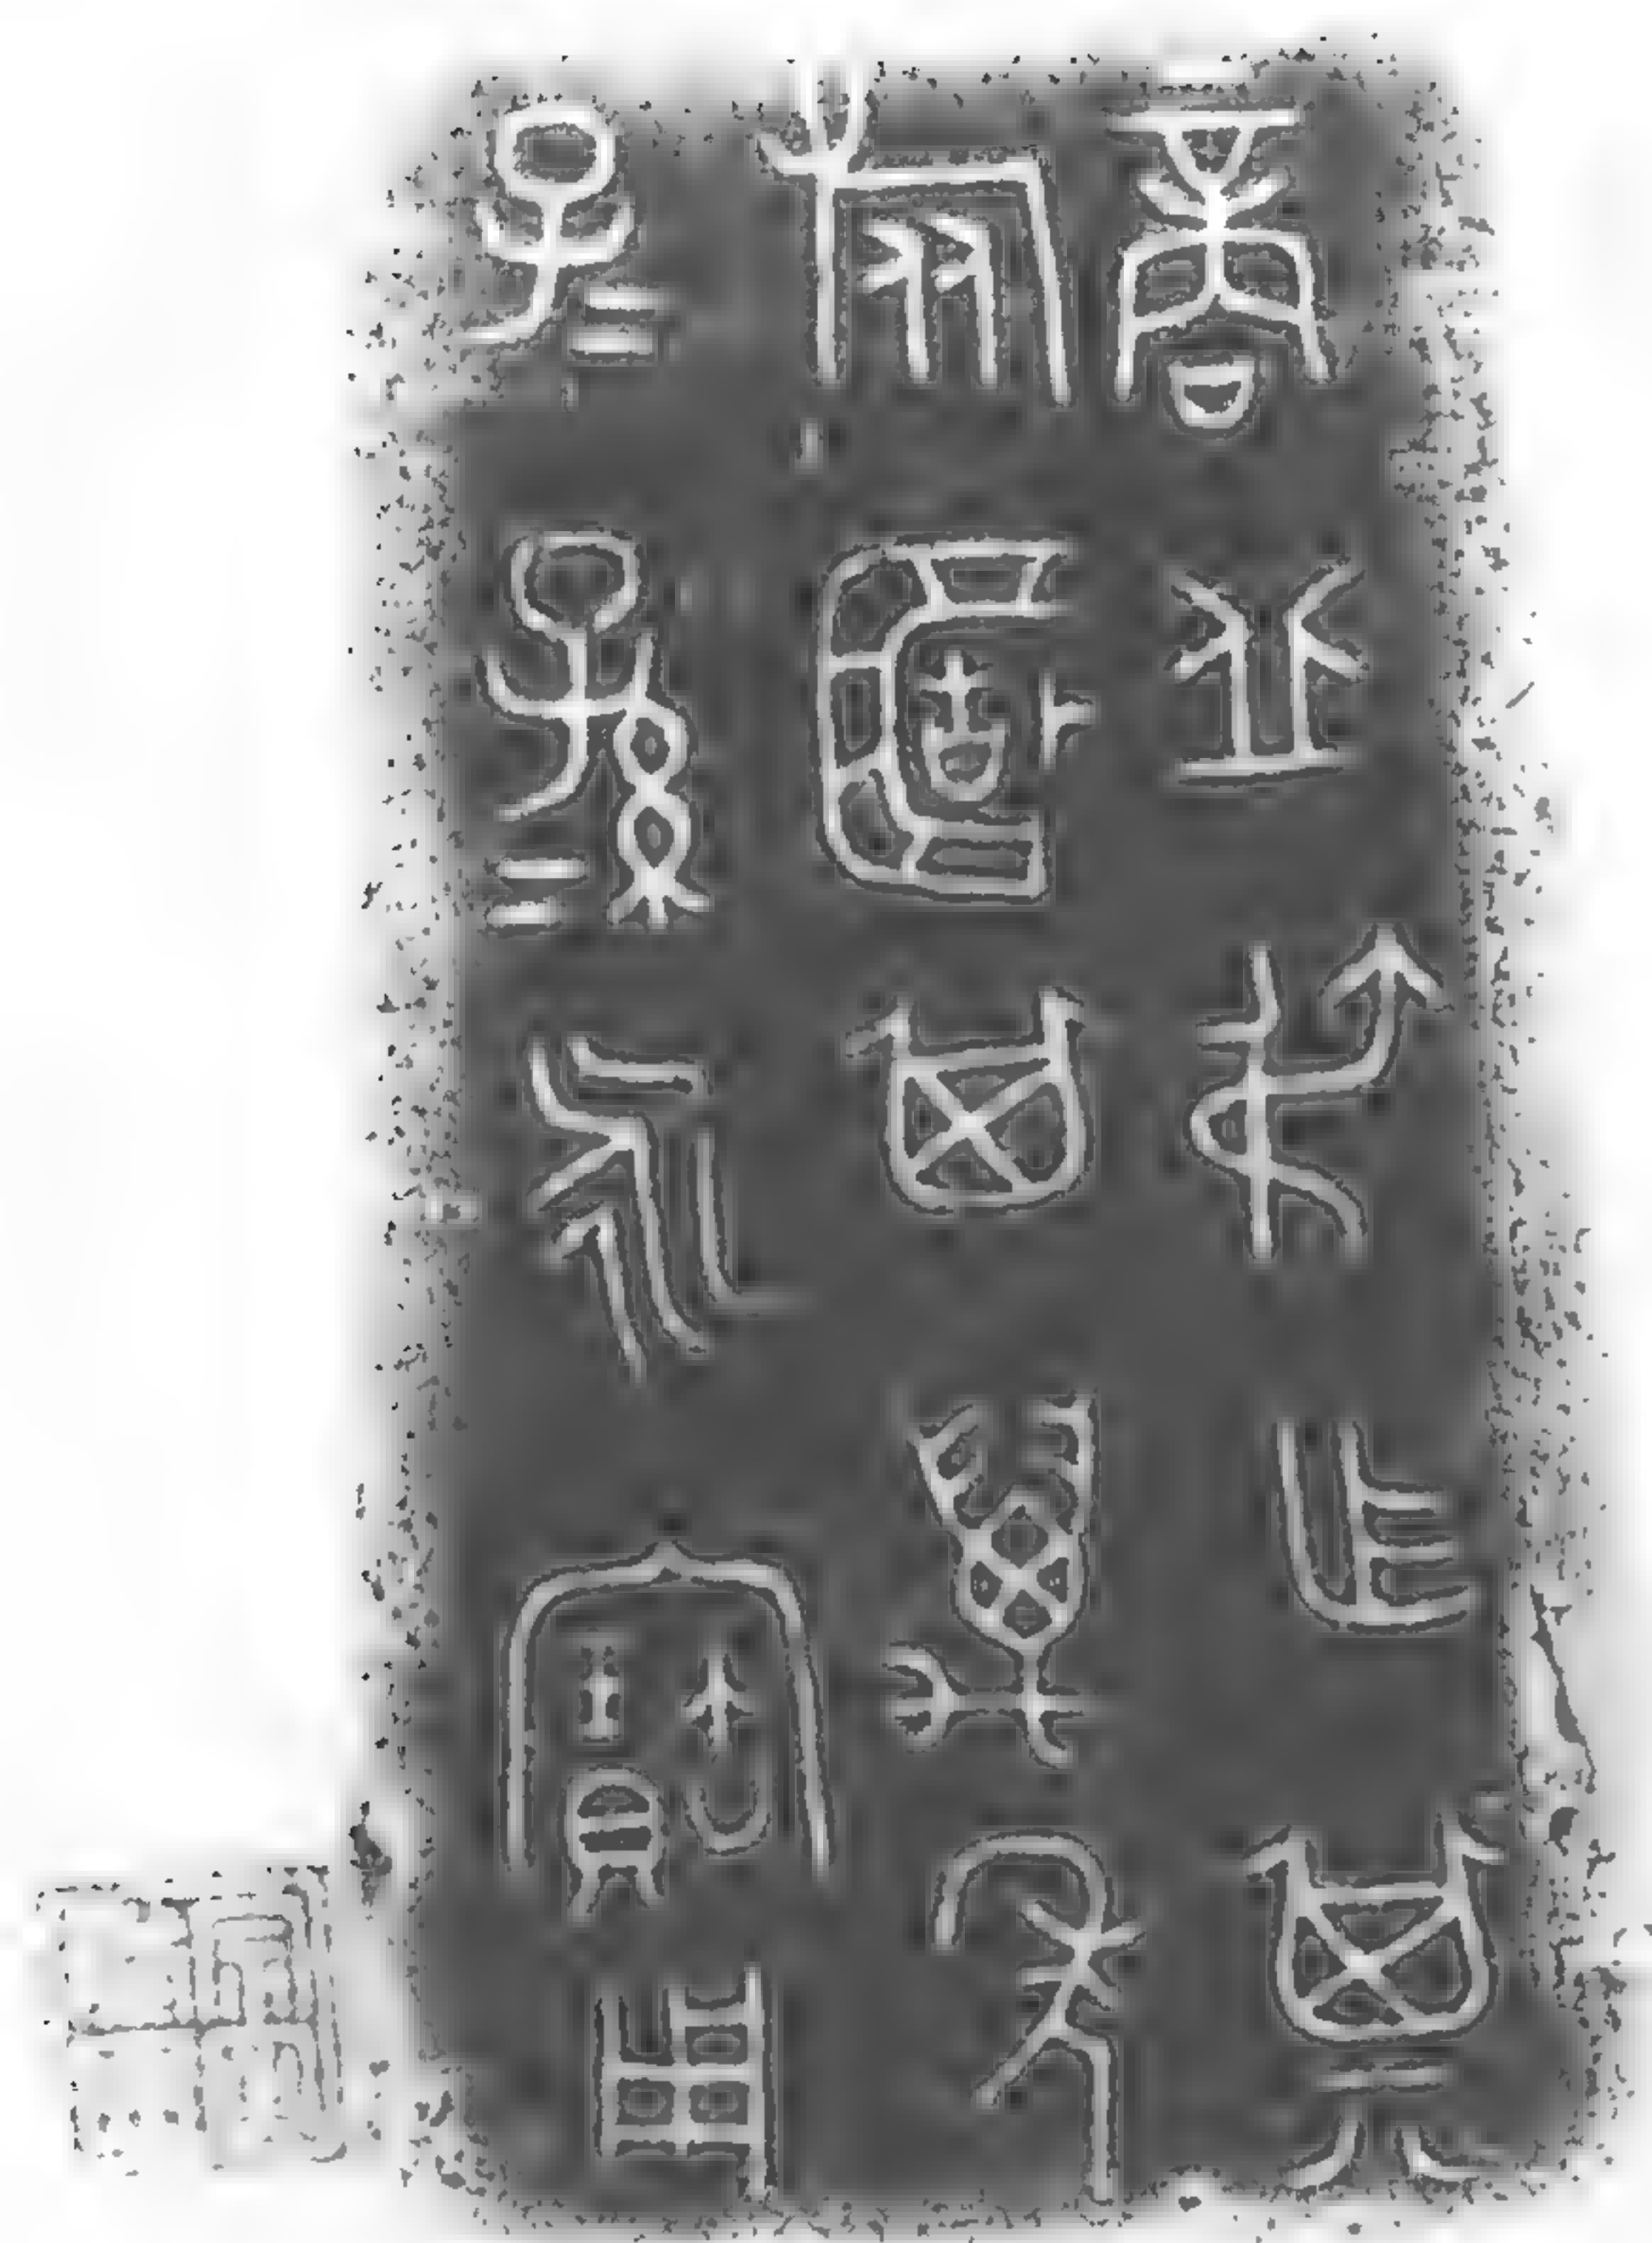 商丘弔乍其
旅簠其萬年
子=孫=永寶用